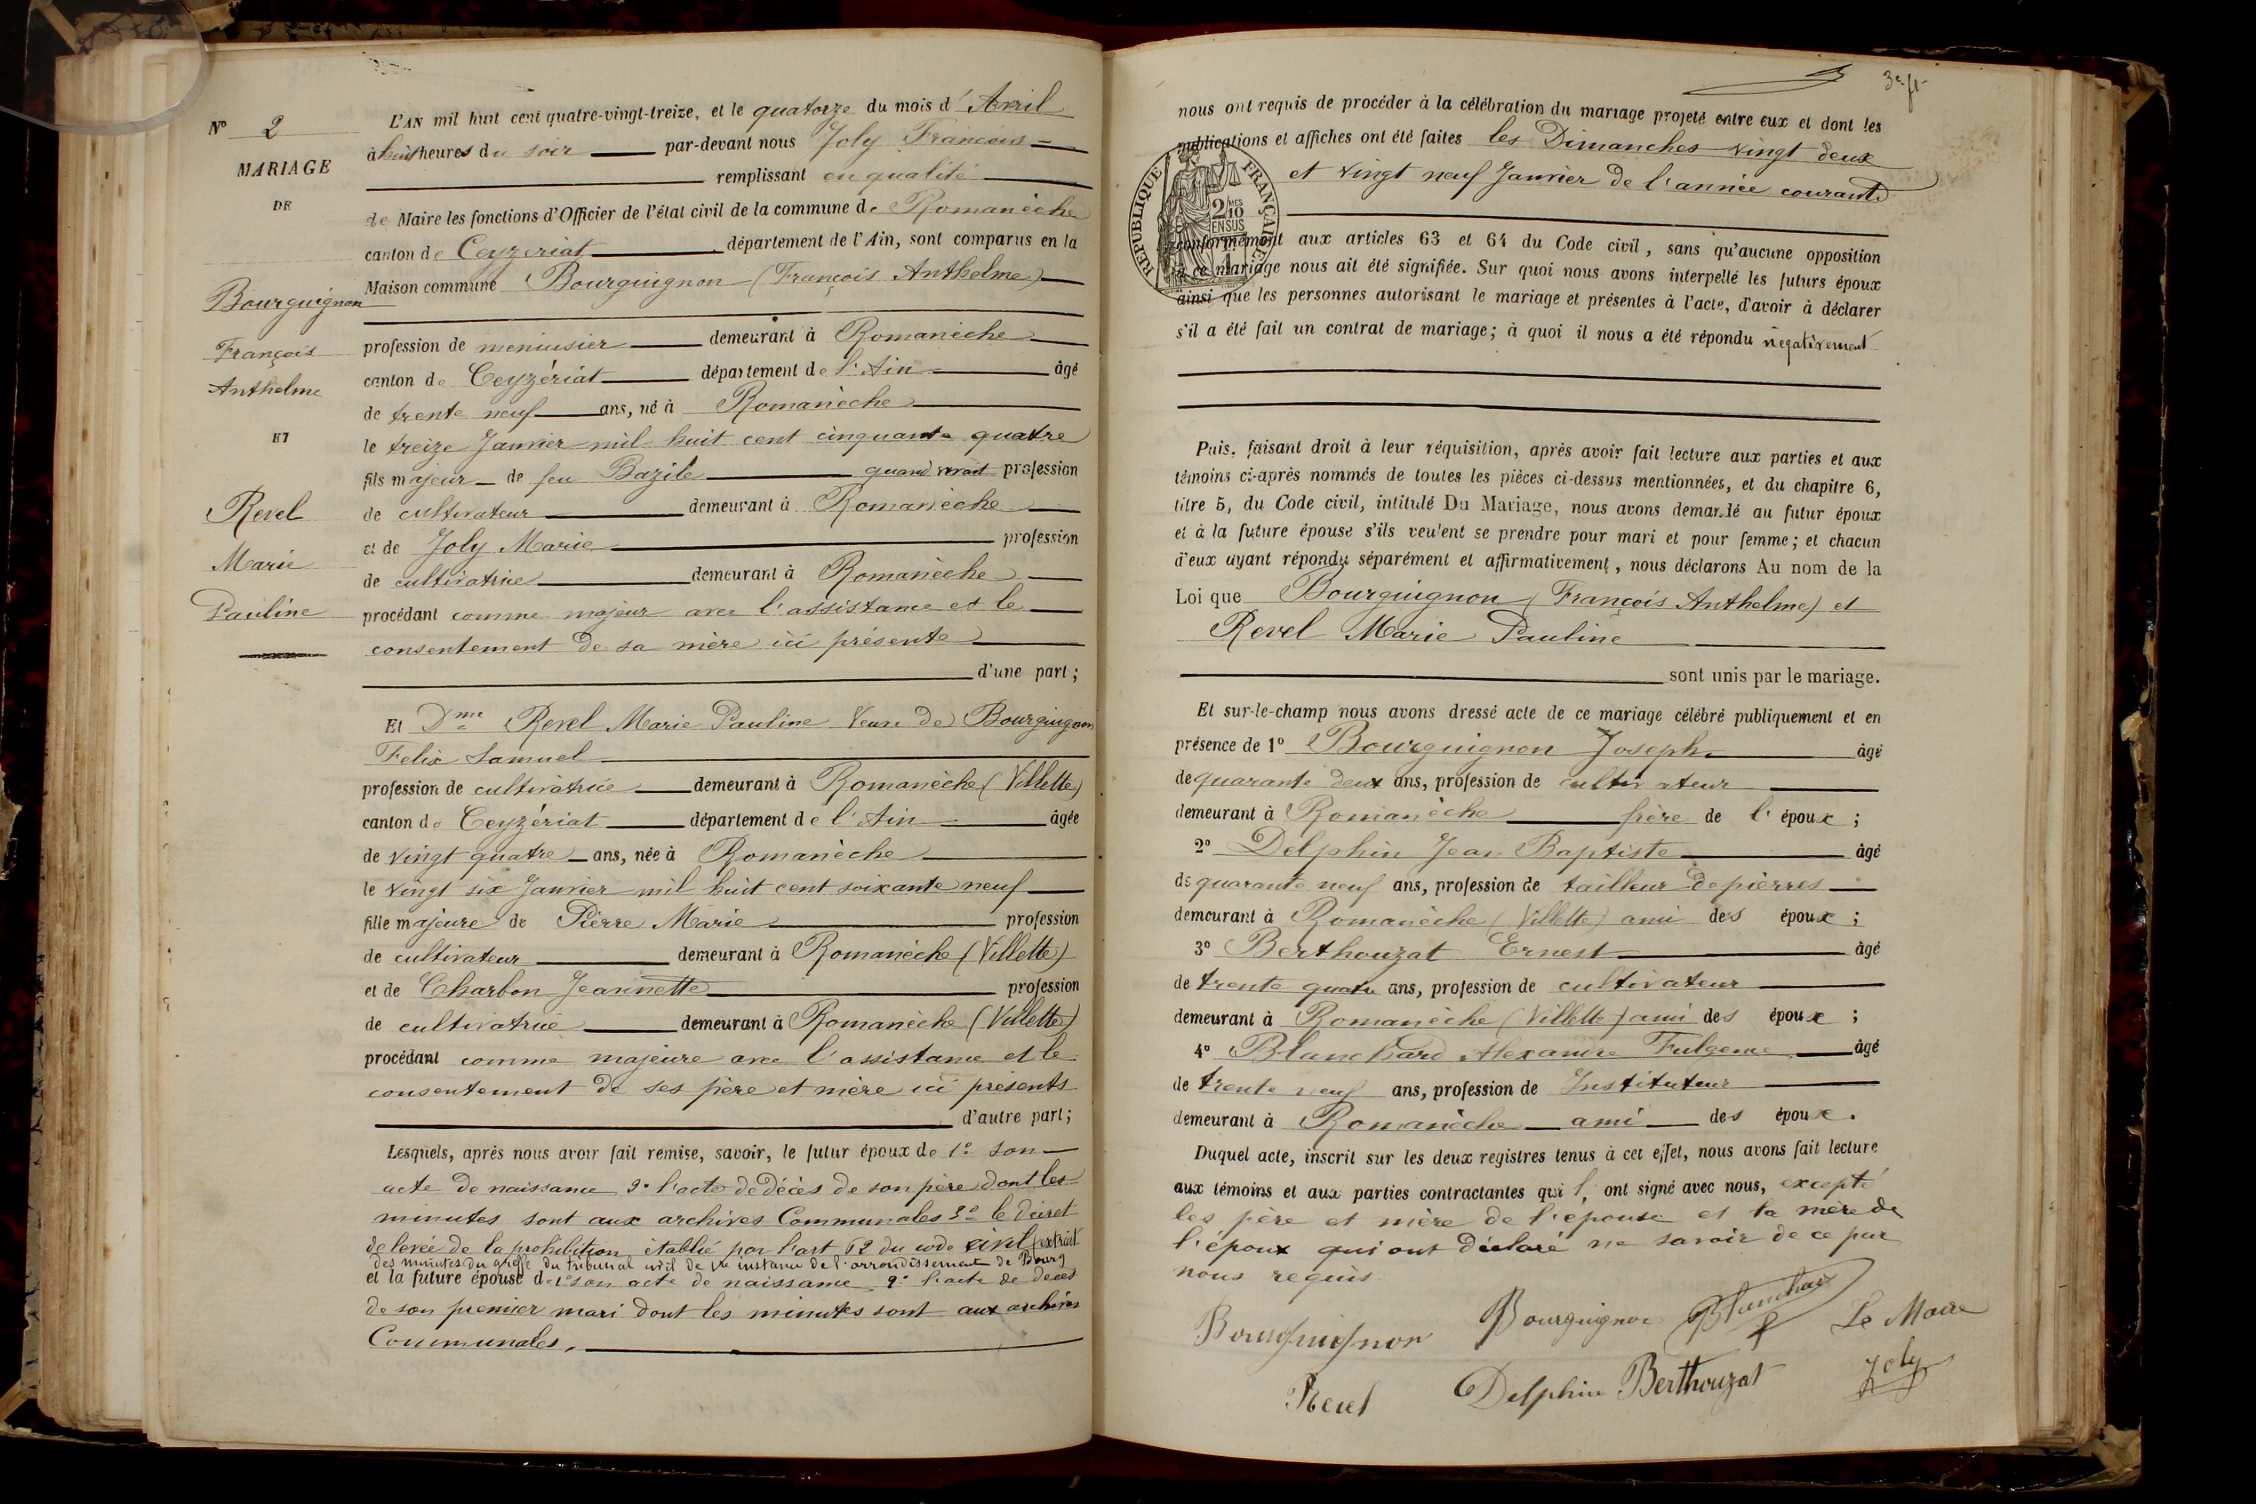 N° 2
MARIAGE
DE
Bourguignon
François
Anthelme
ET
Revel
Marie
Pauline
L'AN mil huit cent quatre-vingt-treize, et le quatorze du mois d'Avril
à huit heures du soir par-devant nous Joly François
remplissant en qualité
de Maire les fonctions d'Officier de l'état civil de la commune de Romanèche
canton de Ceyzeriat département de l'Ain, sont comparus en la
Maison commune Bourguignon (François Anthelme)
profession de menuisier demeurant à Romanèche
canton de Ceyzériat département de l'Ain âgé
de trente neuf ans, né à Romanèche
le treize Janvier mil huit cent cinquante quatre
fils majeur de feu Bazile quand vivait profession
de cultivateur demeurant à Romanèche
et de Joly Marie profession
de cultivatrice demeurant à Romanèche
procédant comme majeur avec l'assistance et le
consentement de sa mère ici présente
d'une part ;
Et Dme Revel Marie Pauline Veuve de Bourguignon
Felix Samuel
profession de cultivatrice demeurant à Romanèche (Villette)
canton de Ceyzériat département de l'Ain âgée
de vingt quatre ans, née à Romanèche
le vingt six Janvier mil huit cent soixante neuf
fille majeure de Pierre Marie profession
de cultivateur demeurant à Romanèche (Villette)
et de Charbon Jeannette profession
de cultivatrice demeurant à Romanèche (Villette)
procédant comme majeure avec l'assistance et le
consentement de ses père et mère ici présents
d'autre part ;
Lesquels, après nous avoir fait remise, savoir, le futur époux de 1° son
acte de naissance 2° l'acte de décès de son père dont les
minutes sont aux archives Communales 3° le décret
de levée de la prohibition établie par l'art 62 du code civil extrait
des minutes du greffe du tribunal civil de 1re instance de l'arrondissement de Bourg
et la future épouse de 1° son acte de naissance 2° l'acte de décès
de son premier mari dont les minutes sont aux archives
Communales.
nous ont requis de procéder à la célébration du mariage projeté entre eux et dont les
publications et affiches ont été faites les Dimanches vingt deux
et vingt neuf Janvier de l'année courante
RÉPUBLIQUE FRANÇAISE
2/10 MES
EN SUS
conformément aux articles 63 et 64 du Code civil, sans qu'aucune opposition
à ce mariage nous ait été signifiée. Sur quoi nous avons interpellé les futurs époux
ainsi que les personnes autorisant le mariage et présentes à l'acte, d'avoir à déclarer
s'il a été fait un contrat de mariage ; à quoi il nous a été répondu négativement
Puis, faisant droit à leur réquisition, après avoir fait lecture aux parties et aux
témoins ci-après nommés de toutes les pièces ci-dessus mentionnées, et du chapitre 6,
titre 5, du Code civil, intitulé Du Mariage, nous avons demandé au futur époux
et à la future épouse s'ils veulent se prendre pour mari et pour femme ; et chacun
d'eux ayant répondu séparément et affirmativement, nous déclarons Au nom de la
Loi que Bourguignon (François Anthelme) et
Revel Marie Pauline
sont unis par le mariage.
Et sur-le-champ nous avons dressé acte de ce mariage célébré publiquement et en
présence de 1° Bourguignon Joseph âgé
de quarante deux ans, profession de cultivateur
demeurant à Romanèche frère de l'époux ;
2° Delphin Jean Baptiste âgé
de quarante neuf ans, profession de tailleur de pierres
demeurant à Romanèche (Villette) ami des époux ;
3° Berthouzat Ernest âgé
de trente quatre ans, profession de cultivateur
demeurant à Romanèche (Villette) ami des époux ;
4° Blanchard Alexandre Fulgence âgé
de trente neuf ans, profession de Instituteur
demeurant à Romanèche ami des époux.
Duquel acte, inscrit sur les deux registres tenus à cet effet, nous avons fait lecture
aux témoins et aux parties contractantes qui l'ont signé avec nous, excepté
les père et mère de l'épouse et la mère de
l'époux qui ont déclaré ne savoir de ce par
nous requis
Bourguignon Bourguignon Blanchard Le Maire
Revel Delphin Berthouzat Joly